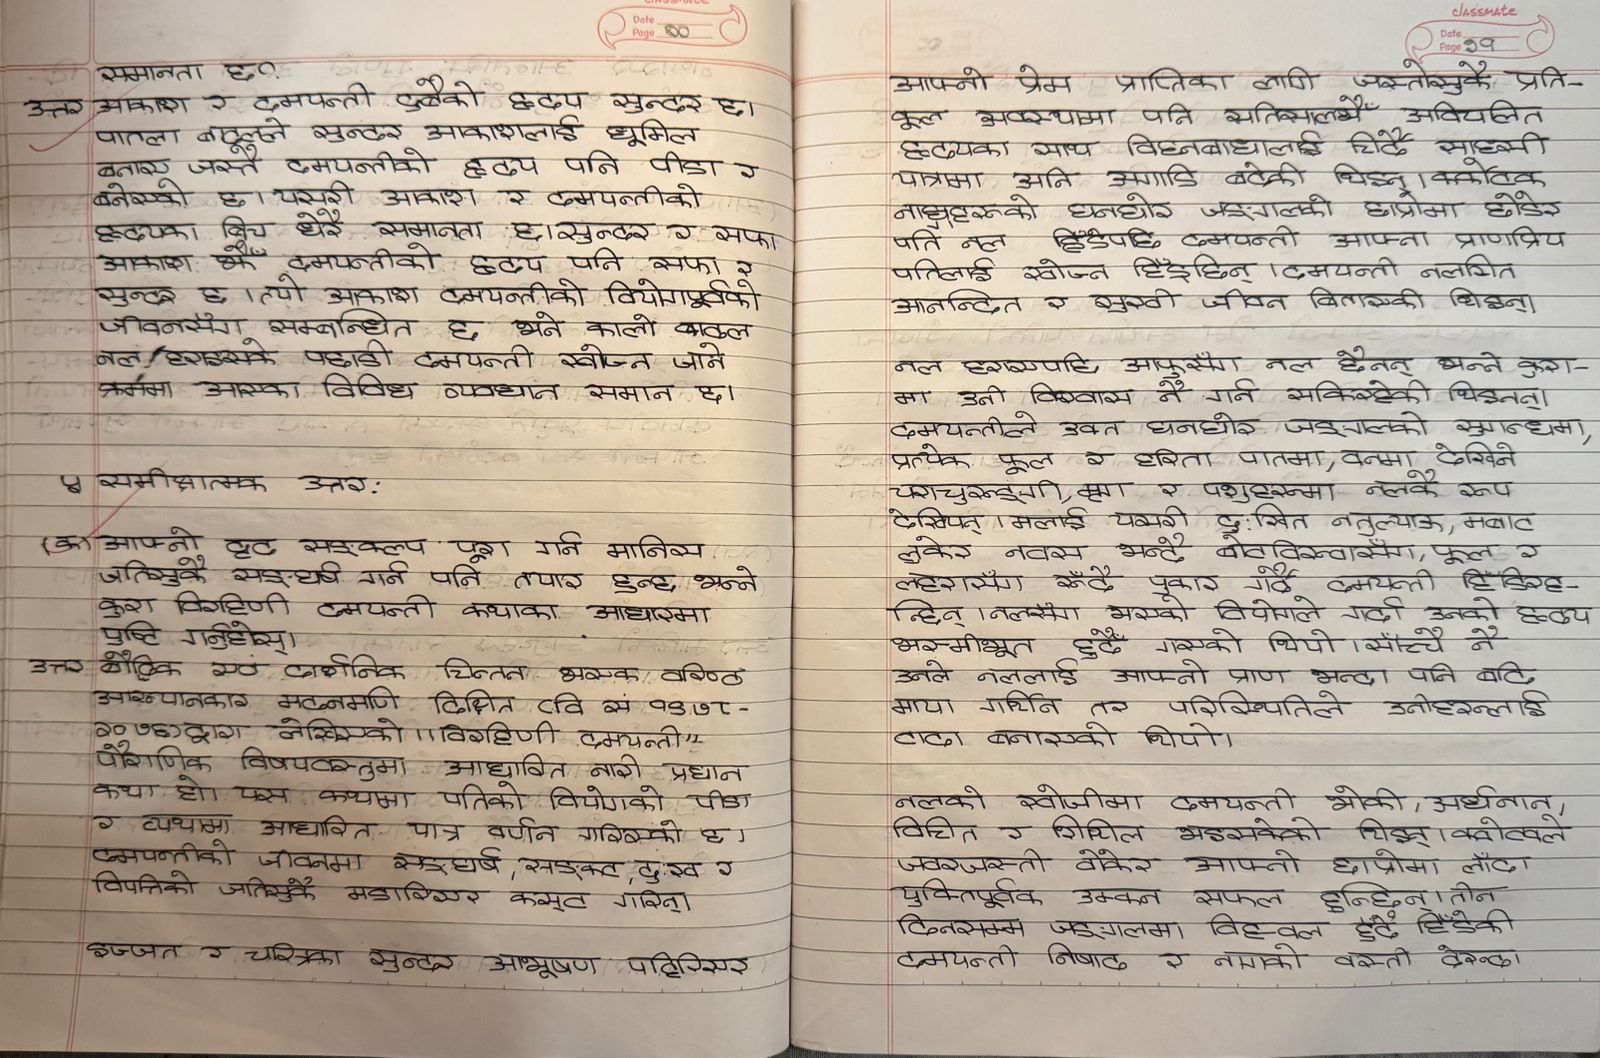 classmate
Date
Page 30
समानता छ?
उत्तर आकाश र दमयन्ती दुवैको हृदय सुन्दर छ।
पातला बादलुले सुन्दर आकाशलाई धूमिल
बनाए जस्तै दमयन्तीको हृदय पनि पीडा र
बनेएको छ। यसरी आकाश र दमयन्तीको
हृदयका बिच धेरै समानता छ। सुन्दर र सफा
आकाश झैँ दमयन्तीको हृदय पनि सफा र
सुन्दर छ। त्यो आकाश दमयन्तीको वियोगपूर्वको
जीवनसँग सम्बन्धित छ भने कालो बादल
नल हराइसके पछाडी दमयन्ती खोज्न जाने
क्रममा आएका विविध व्यवधान समान छ।
४ समीक्षात्मक उत्तर:
(क) आफ्नो दृढ सङ्कल्प पूरा गर्न मानिस
जतिसुकै सङ्घर्ष गर्न पनि तयार हुन्छ भन्ने
कुरा विरहिणी दमयन्ती कथाका आधारमा
पुष्टि गर्नुहोस्।
उत्तर बौद्धिक एवं दार्शनिक चिन्तन भएक वरिष्ठ
आख्यानकार मदनमणि दिक्षित (वि सं १९७८-
२०७६) द्वारा लेखिएको "विरहिणी दमयन्ती"
पौराणिक विषयवस्तुमा आधारित नारी प्रधान
कथा हो। यस कथामा पतिको वियोगको पीडा
र व्यथामा आधारित पात्र वर्णन गरिएको छ।
दमयन्तीको जीवनमा सङ्घर्ष, सङ्कट, दु:ख र
विपत्तिको जतिसुकै गरिन्।
इज्जत र चरित्रका सुन्दर आभूषण पहिरिएर
classmate
Date
Page 29
आफ्नो प्रेम प्राप्तिका लागी जस्तोसुकै प्रति-
कूल अवस्थामा पनि सतिसालझैँ अविचलित
हृदयका साथ विघ्नबाधालाई चिर्दै साहसी
पात्रामा अनि अगाडि बढेकी थिइन्। कर्कोटक
नागहरूको घनघोर जङ्गलको छाप्रोमा छोडेर
पति नल हिँडेपछि दमयन्ती आफ्ना प्राणप्रिय
पतिलाई खोज्न हिँड्छिन्। दमयन्ती नलसित
आनन्दित र सुखी जीवन बिताएकी थिइन्।
नल हराएपछि आफुसँग नल छैनन् भन्ने कुरा-
मा उनी विश्वास नै गर्न सकिरहेकी थिइनन्।
दमयन्तीले उक्त घनघोर जङ्गलको सुगन्धमा,
प्रत्येक फूल र हरिता पातमा, वनमा देखिने
चराचुरुङ्गी, मृग र पशुहरूमा नलकै रूप
देखिन्। मलाई यसरी दु:खित नतुल्याऊ, मबाट
लुकेर नबस भन्दै बोटबिरुवासँग, फूल र
लहरासँग रूँदै पुकार गर्दै दमयन्ती हिँडिरह-
न्छिन्। नलसँग भएको वियोगले गर्दा उनको हृदय
भस्मीभूत हुँदै गएको थियो। साँच्चै नै
उनले नललाई आफ्नो प्राण भन्दा पनि बढि
माया गर्थिन तर परिस्थितिले उनीहरूलाई
टाढा बनाएको थियो।
नलको खोजीमा दमयन्ती भोकी, अर्धनग्न,
र शिथिल भइसकेकी थिइन्।
जबरजस्ती बोकेर आफ्नो छाप्रोमा लाँदा
युक्तिपूर्वक उम्कन सफल हुन्छिन्। तीन
दिनसम्म जङ्गलमा विह्वल हुँदै हिँडेकी
दमयन्ती निषाद र नागको वस्ती देख्दा